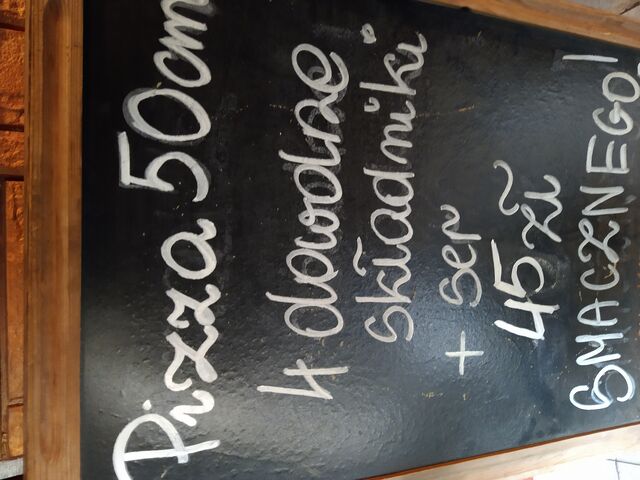 Pizza 50cm
4 dowolne
składniki
+ ser
45 zł
SMACZNEGO!